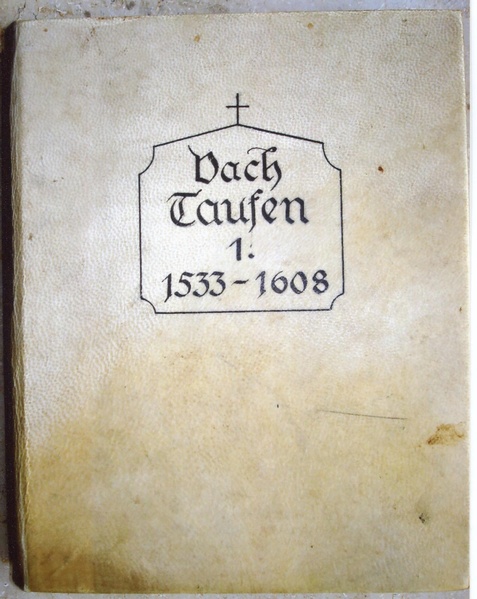 Vach
Taufen
1.
1533-1608